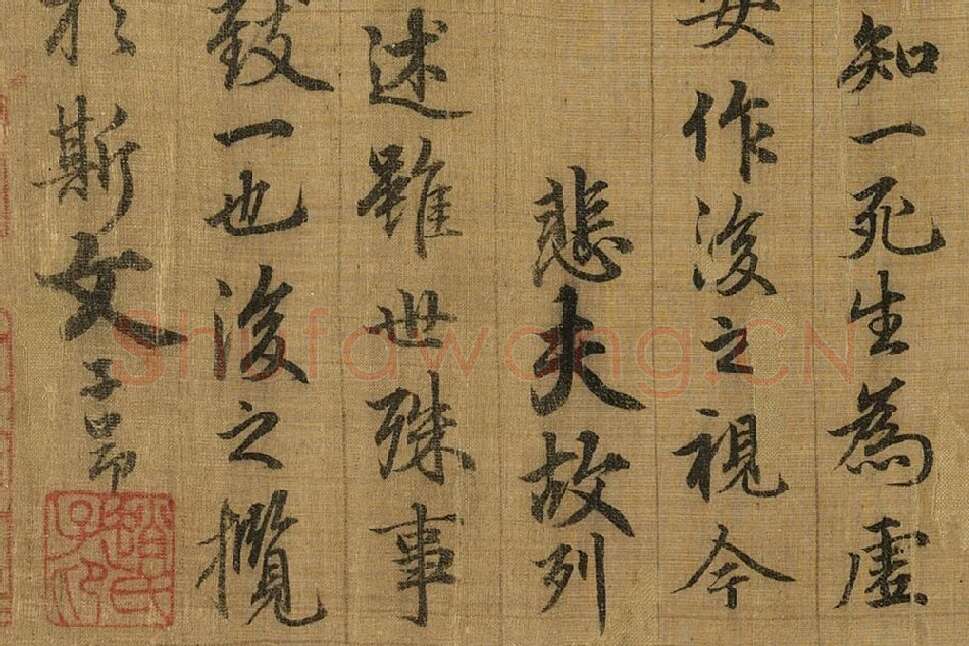 知一死生為虛
妄作後之視今
悲夫故列
述雖世殊事
致一也後之攬
於斯文子昂
趙氏子印
Shufawang.CN